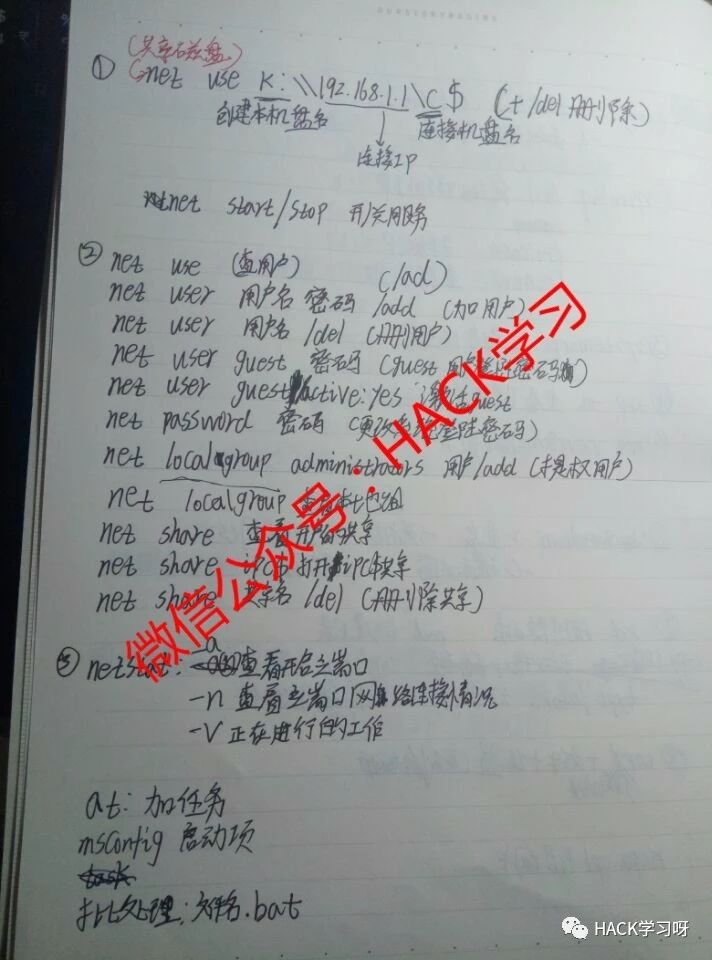 (共享磁盘)
① net use K: \\192.168.1.1\C$ (+ /del 删除)
创建本机盘名 连接机盘名
连接IP
net start/stop 开/关服务
② net use (查用户) (/ad)
net user 用户名 密码 /add (加用户)
net user 用户名 /del (删用户)
net user guest 密码 (guest 密码
net user guest active:yes 激活guest
net password 密码 (更改系统登陆密码)
net localgroup administrators 用户/add (提权用户)
net localgroup 查看本地组
net share 查看开启的共享
net share ipc$ 打开ipc$共享
net share 共享名 /del (删除共享)
③ netstat: -a 查看开启之端口
-n 查看之端口网络连接情况
-V 正在进行的工作
at: 加任务
msconfig 启动项
task
批处理: 文件名.bat
微信公众号:HACK学习
HACK学习呀